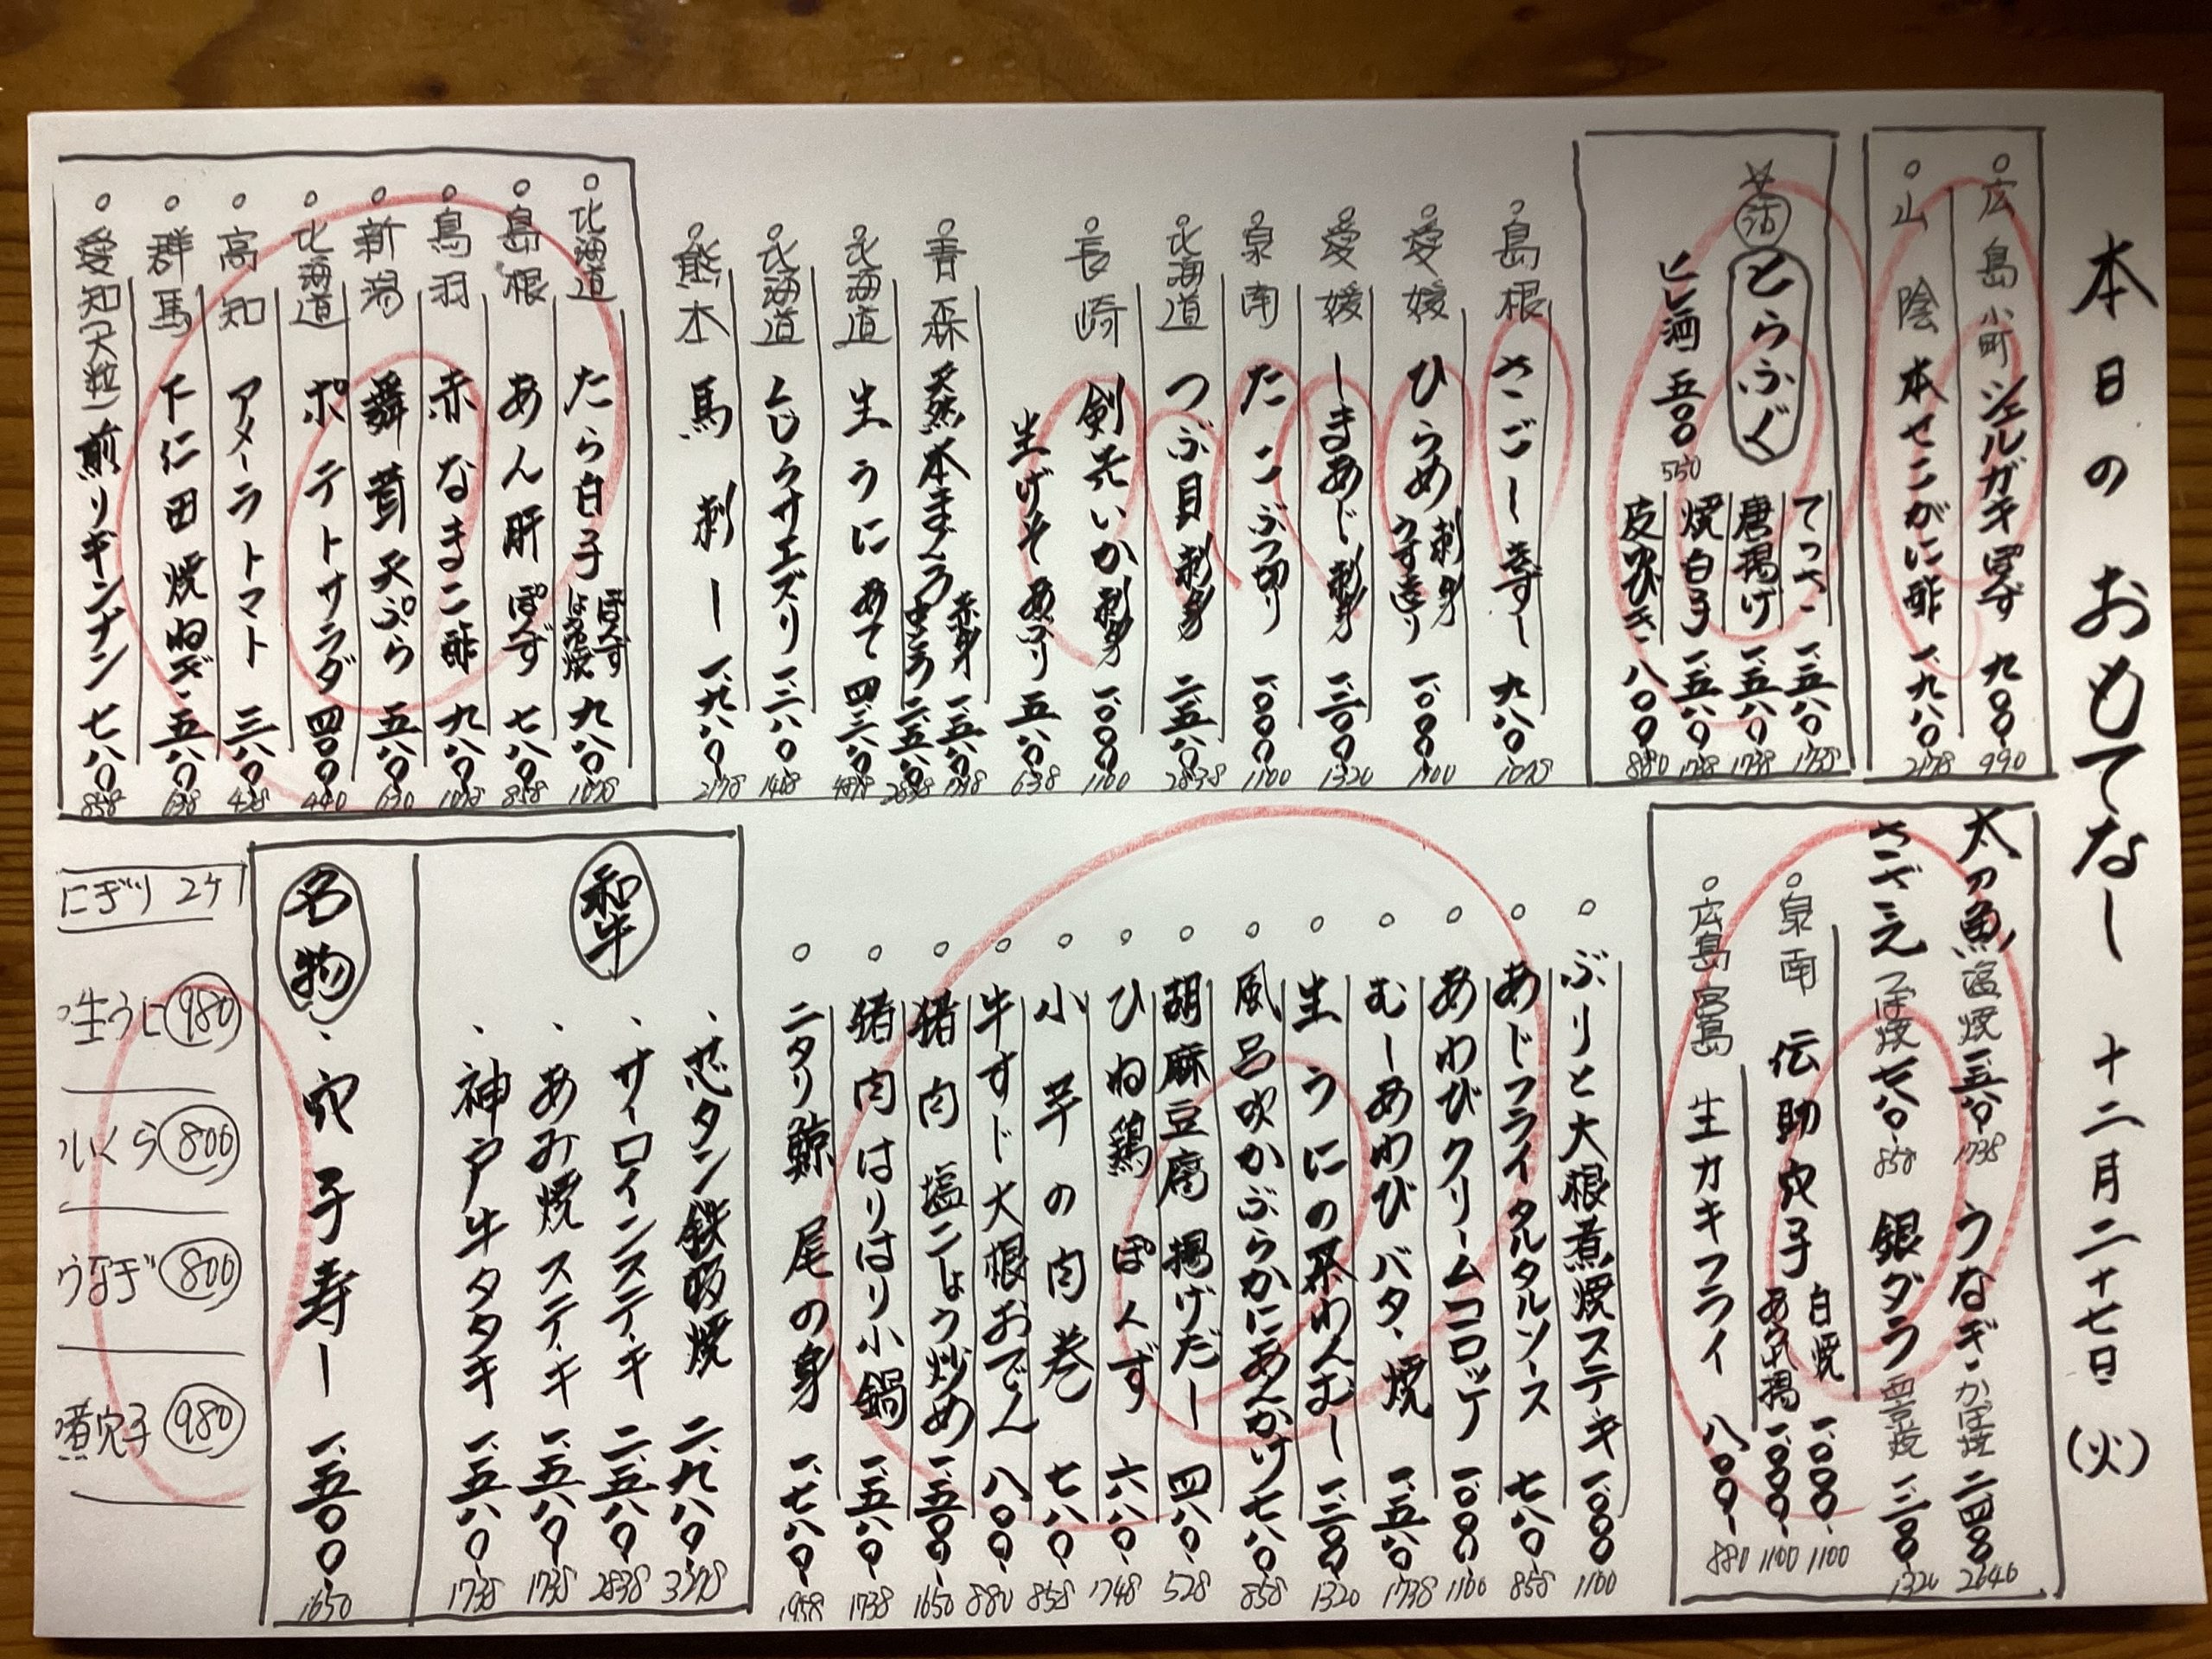 本日のおもてなし 十二月二十七日(火)
広島 小町 シェルガキ ぽんず 九〇〇 990
山陰 本せこがに酢 一、九八〇 2178
☆ 活 とらふぐ
てっさ 一、五八〇 1738
唐揚げ 一、五八〇 1738
焼白子 一、五八〇 1738
皮湯びき 八〇〇 880
ヒレ酒 五〇〇 550
島根 さごし きずし 九八〇 1078
愛媛 ひらめ 刺身 うす造り 一、〇〇〇 1100
愛媛 しまあじ 刺身 一、二〇〇 1320
泉南 たこぶつ切り 一、〇〇〇 1100
北海道 つぶ貝 刺身 二、五八〇 2838
長崎 剣先いか 刺身 一、〇〇〇 1100
生げそ あぶり 五八〇 638
青森 天然本まぐろ 赤身 一、五八〇 1738
中とろ 二、五八〇 2838
北海道 生うに あて 四、三八〇
北海道 くじらサエズリ 一、二八〇 1408
熊本 馬刺し 一、九八〇 2178
北海道 たら白子 ぽんず ほうろく焼 九八〇 1078
島根 あん肝 ぽんず 七八〇 858
鳥羽 赤なまこ酢 九八〇 1078
新潟 舞茸 天ぷら 五八〇
北海道 ポテトサラダ 四〇〇 440
高知 アメーラトマト 三八〇
群馬 下仁田焼ねぎ 五八〇 638
愛知(大粒) 煎りギンナン 七八〇 858
太刀魚 塩焼 一、五八〇 1738
うなぎ かば焼 二、四〇〇 2640
さざえ つぼ焼 七八〇 858
銀ダラ 西京焼 一、二〇〇 1320
泉南 伝助穴子 白焼 一、〇〇〇 1100
あられ揚 一、〇〇〇 1100
広島 宮島 生カキフライ 八〇〇 880
ぶりと大根煮焼ステーキ 一、〇〇〇 1100
あじフライ タルタルソース 七八〇 858
あわびクリームコロッケ 一、〇〇〇 1100
むしあわびバター焼 一、五八〇 1738
生うにの茶わんむし 一、二〇〇 1320
風呂吹かぶらかにあんかけ 七八〇 858
胡麻豆腐 揚げだし 四八〇 528
ひね鶏 ぽんず 六八〇 748
小芋の肉巻 七八〇 858
牛すじ大根おでん 八〇〇 880
猪肉 塩こしょう炒め 一、五〇〇 1650
猪肉 はりはり小鍋 一、五八〇 1738
ニタリ鯨 尾の身 一、七八〇 1958
和牛
芯タン鉄板焼 二、九八〇 3278
サーロインステーキ 二、五八〇 2838
あみ焼ステーキ 一、五八〇 1738
神戸牛タタキ 一、五八〇 1738
名物 穴子寿し 一、五〇〇 1650
にぎり 2ケ
生うに 980
いくら 800
うなぎ 800
煮穴子 980